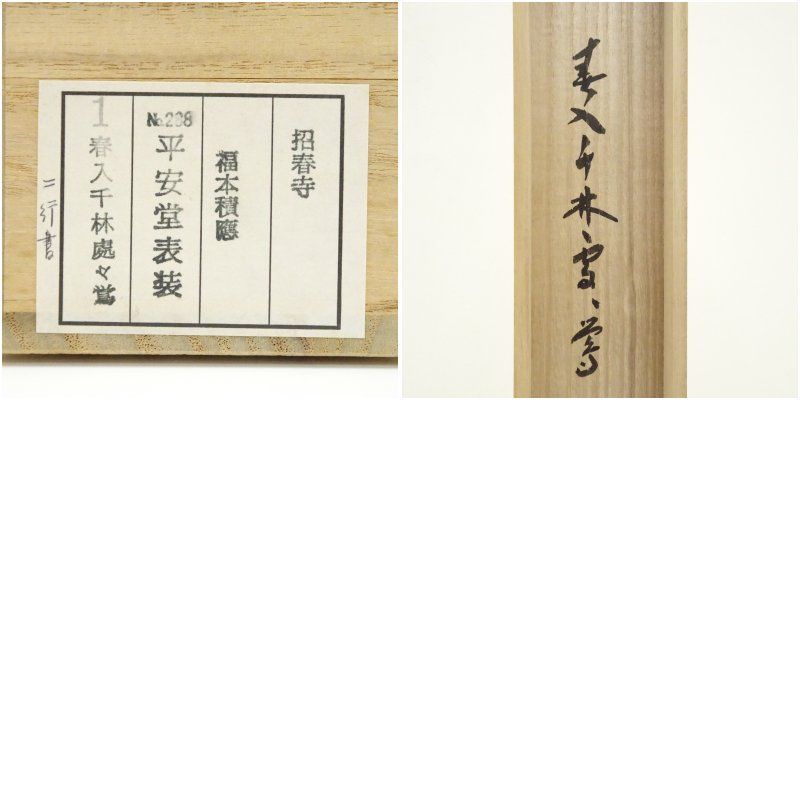 招春寺
福本積應
№298
平安堂表装
1
春入千林處々鶯
二行書
春入千林處々鶯